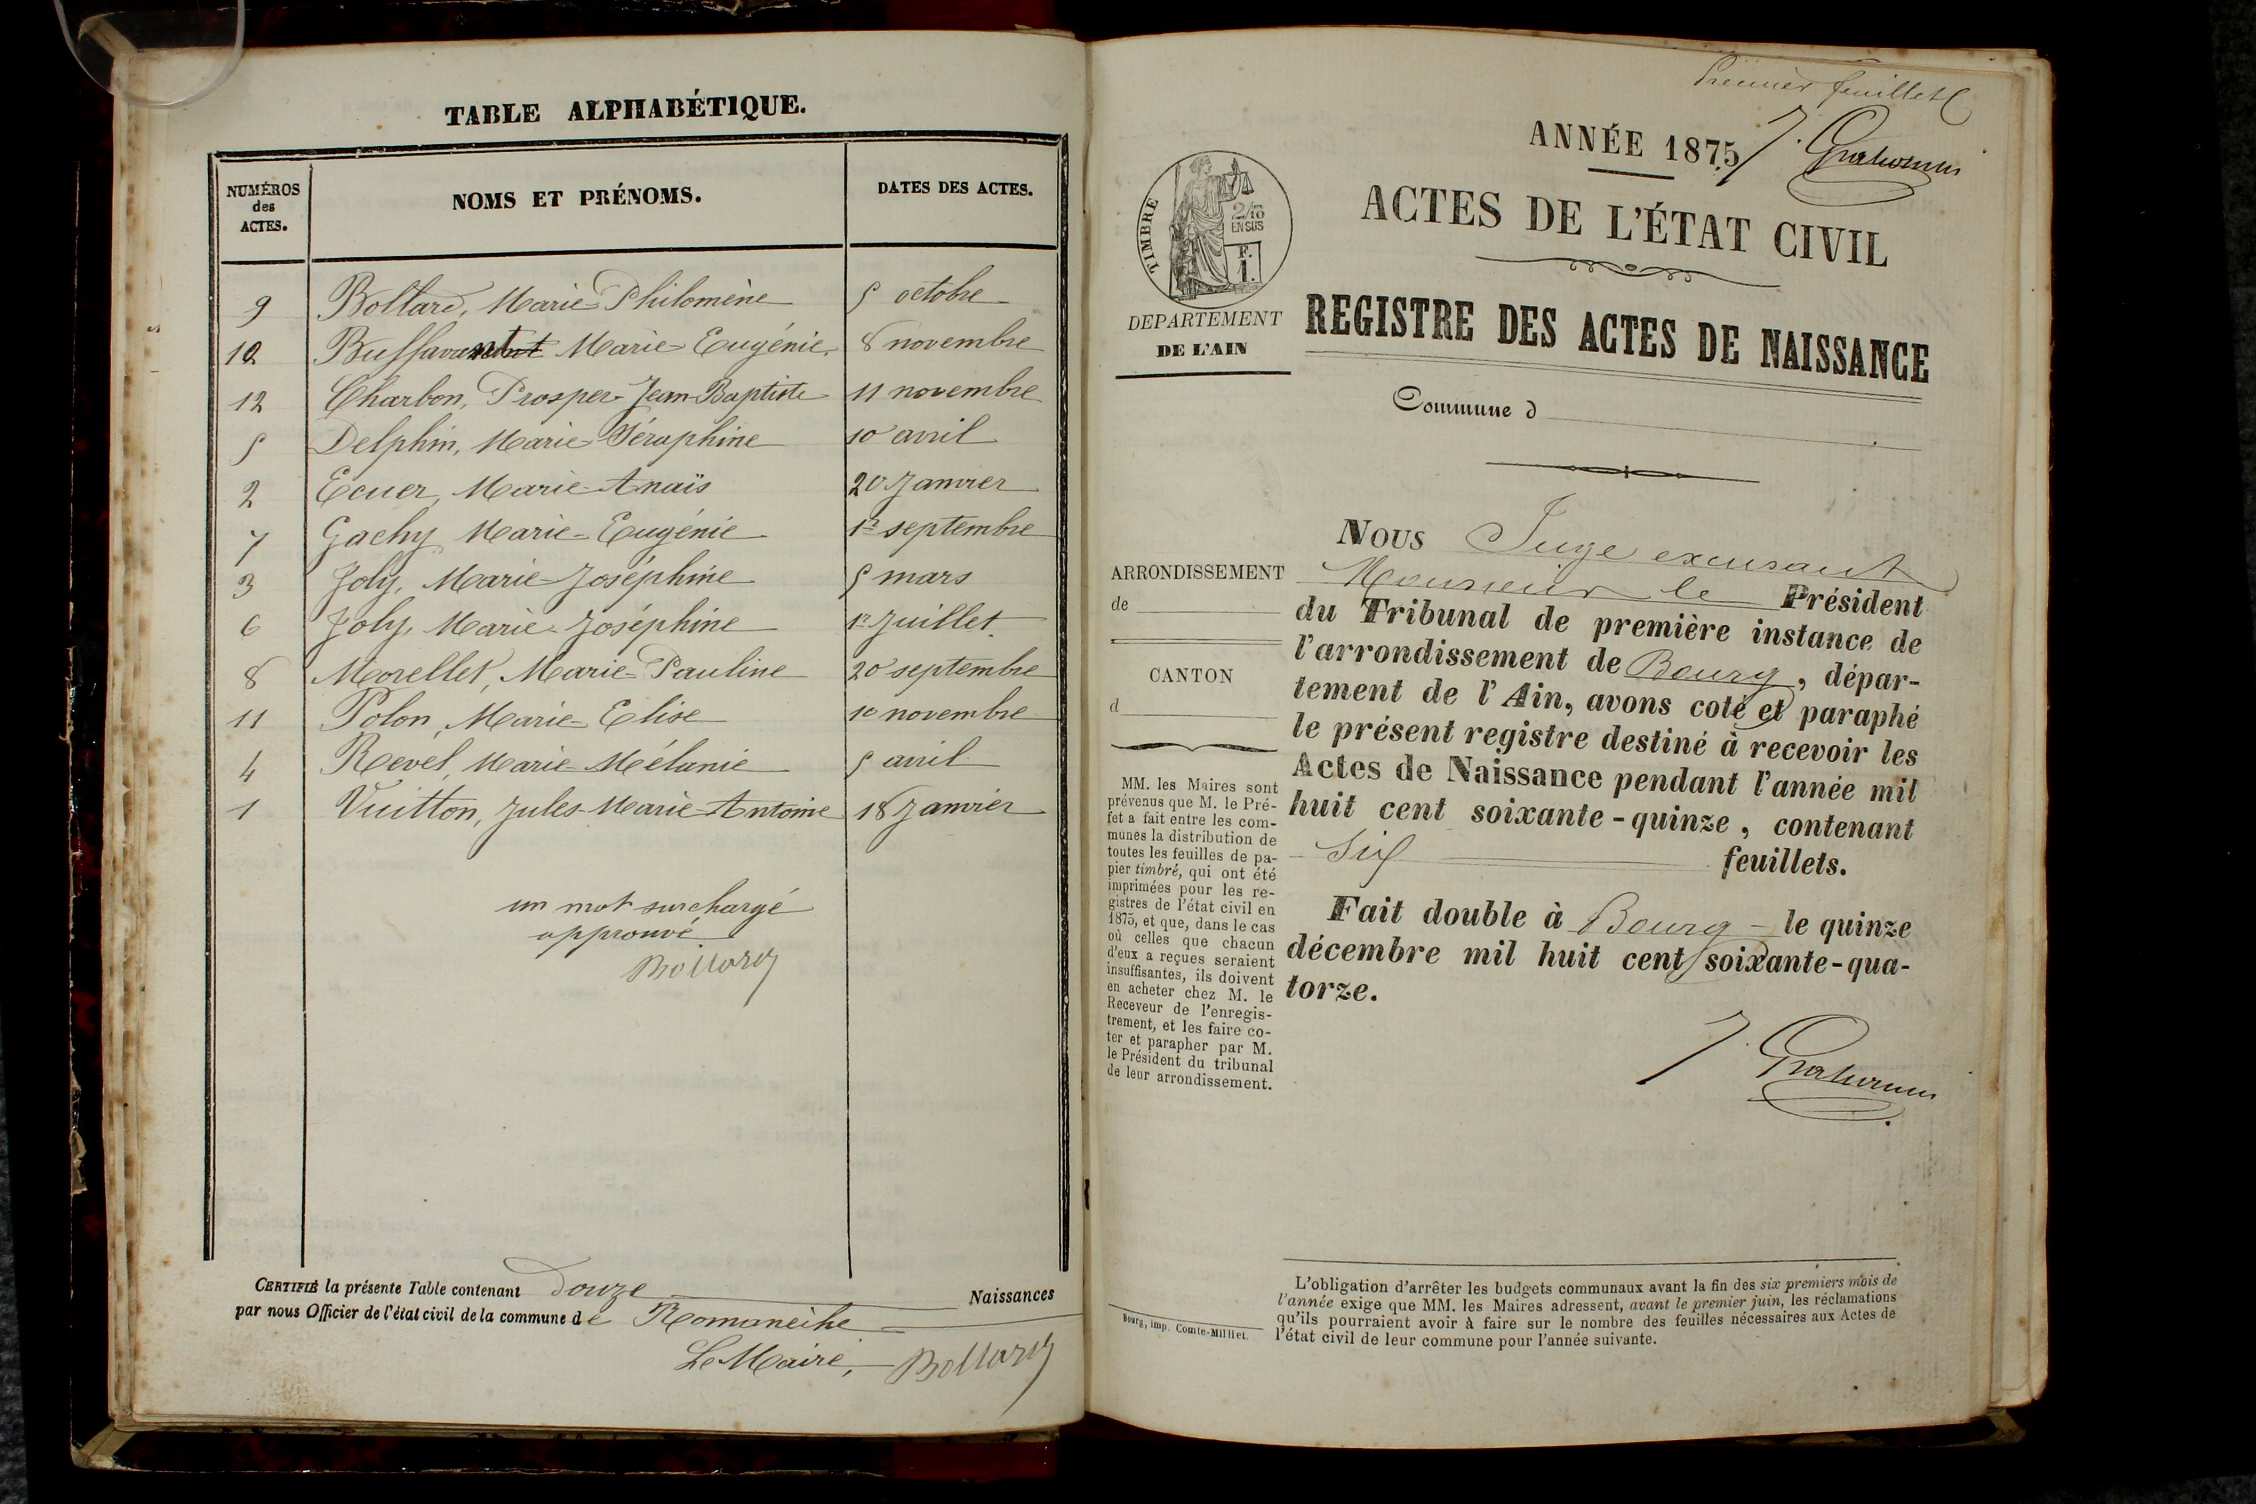 TABLE ALPHABÉTIQUE.
NUMÉROS
des
ACTES.
NOMS ET PRÉNOMS.
DATES DES ACTES.
9 Bollard, Marie-Philomène 5 octobre
10 Marie Eugénie 8 novembre
12 Charbon, Prosper Jean-Baptiste 11 novembre
5 Delphin, Marie Séraphine 10 avril
2 Ecuer, Marie-Anaïs 20 Janvier
7 Gachy Marie-Eugénie 1er septembre
3 Joly, Marie-Joséphine 5 mars
6 Joly, Marie-Joséphine 1er Juillet
8 Morellet, Marie-Pauline 20 septembre
11 Polon, Marie-Elise 10 novembre
4 Revel, Marie-Mélanie 5 avril
1 Vuitton, Jules-Marie-Antoine 18 Janvier
un mot surchargé
approuvé
Bollard
CERTIFIÉ la présente Table contenant Douze Naissances
par nous Officier de l'état civil de la commune de Romanèche
Le Maire, Bollard
Premier feuillet
ANNÉE 1875
ACTES DE L'ÉTAT CIVIL
TIMBRE
2/10
EN SUS
F.
1.
DEPARTEMENT
DE L'AIN
REGISTRE DES ACTES DE NAISSANCE
Commune d
ARRONDISSEMENT
de
CANTON
d
MM. les Maires sont
prévenus que M. le Pré-
fet a fait entre les com-
munes la distribution de
toutes les feuilles de pa-
pier timbré, qui ont été
imprimées pour les re-
gistres de l'état civil en
1875, et que, dans le cas
où celles que chacun
d'eux a reçues seraient
insuffisantes, ils doivent
en acheter chez M. le
Receveur de l'enregis-
trement, et les faire co-
ter et parapher par M.
le Président du tribunal
de leur arrondissement.
Nous Juge excusant
Monsieur le Président
du Tribunal de première instance de
l'arrondissement de Bourg, dépar-
tement de l'Ain, avons coté et paraphé
le présent registre destiné à recevoir les
Actes de Naissance pendant l'année mil
huit cent soixante-quinze, contenant
Six feuillets.
Fait double à Bourg le quinze
décembre mil huit cent soixante-qua-
torze.
Bourg, imp. Comte-Milliet.
L'obligation d'arrêter les budgets communaux avant la fin des six premiers mois de
l'année exige que MM. les Maires adressent, avant le premier juin, les réclamations
qu'ils pourraient avoir à faire sur le nombre des feuilles nécessaires aux Actes de
l'état civil de leur commune pour l'année suivante.